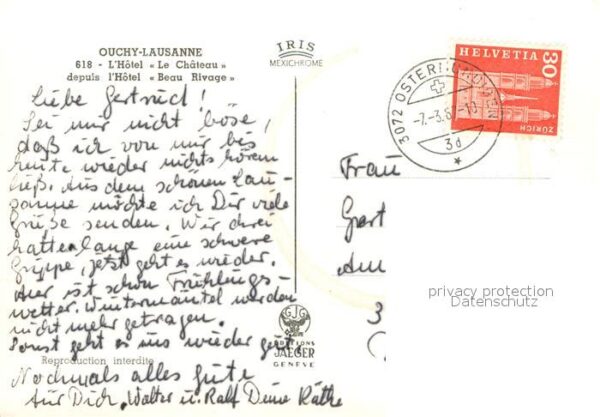 OUCHY-LAUSANNE
618 - L'Hôtel « Le Château »
depuis l'Hôtel « Beau Rivage »
IRIS
MEXICHROME
Liebe Gertrud!
Sei mir nicht böse,
daß ich von mir bis
heute wieder nichts hören
ließ. Aus dem schönen Lau-
sanne möchte ich Dir viele
Grüße senden. Wir drei
hatten lange eine schwere
Grippe, jetzt geht es wieder.
Hier ist schon Frühlings-
wetter. Wintermäntel werden
nicht mehr getragen.
Sonst geht es uns wieder gut.
Nochmals alles Gute
für Dich, Walter u. Ralf Deine Käthe
Reproduction interdite
EDITIONS
JAEGER
GENÈVE
HELVETIA
30
ZÜRICH
3072 OSTERMUNDIGEN
-7.-3.6
3d
Frau
Gert
Am
3
privacy protection
Datenschutz